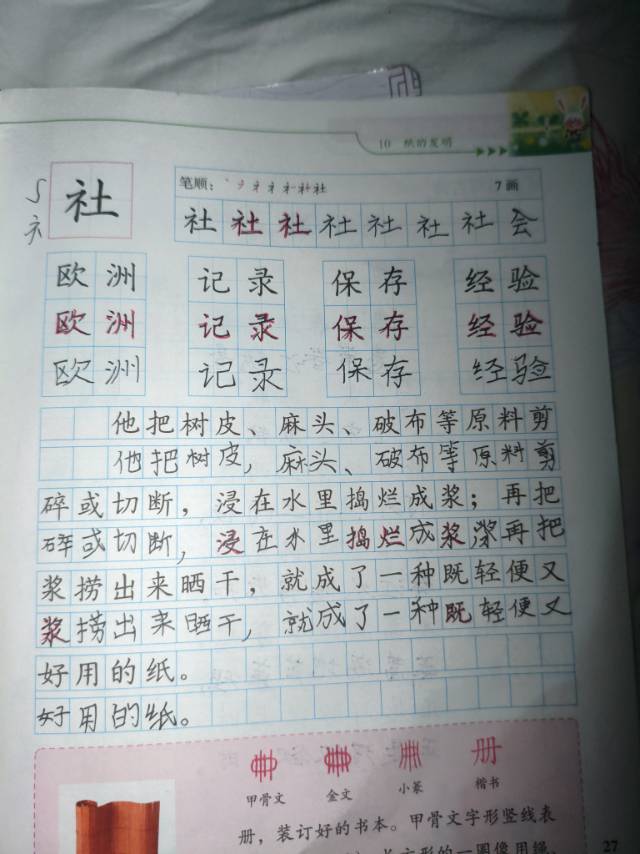 10 纸的发明
社
笔顺: 7画
ネ
社 社 社 社 社 社 社 会
欧洲 记录 保存 经验
欧洲 记录 保存 经验
欧洲 记录 保存 经验
他把树皮、麻头、破布等原料剪
他把树皮，麻头、破布等原料剪
碎或切断，浸在水里捣烂成浆；再把
碎或切断，浸在水里捣烂成浆，浆再把
浆捞出来晒干，就成了一种既轻便又
浆捞出来晒干，就成了一种既轻便又
好用的纸。
好用的纸。
册
甲骨文 金文 小篆 楷书
册，装订好的书本。甲骨文字形竖线表
27